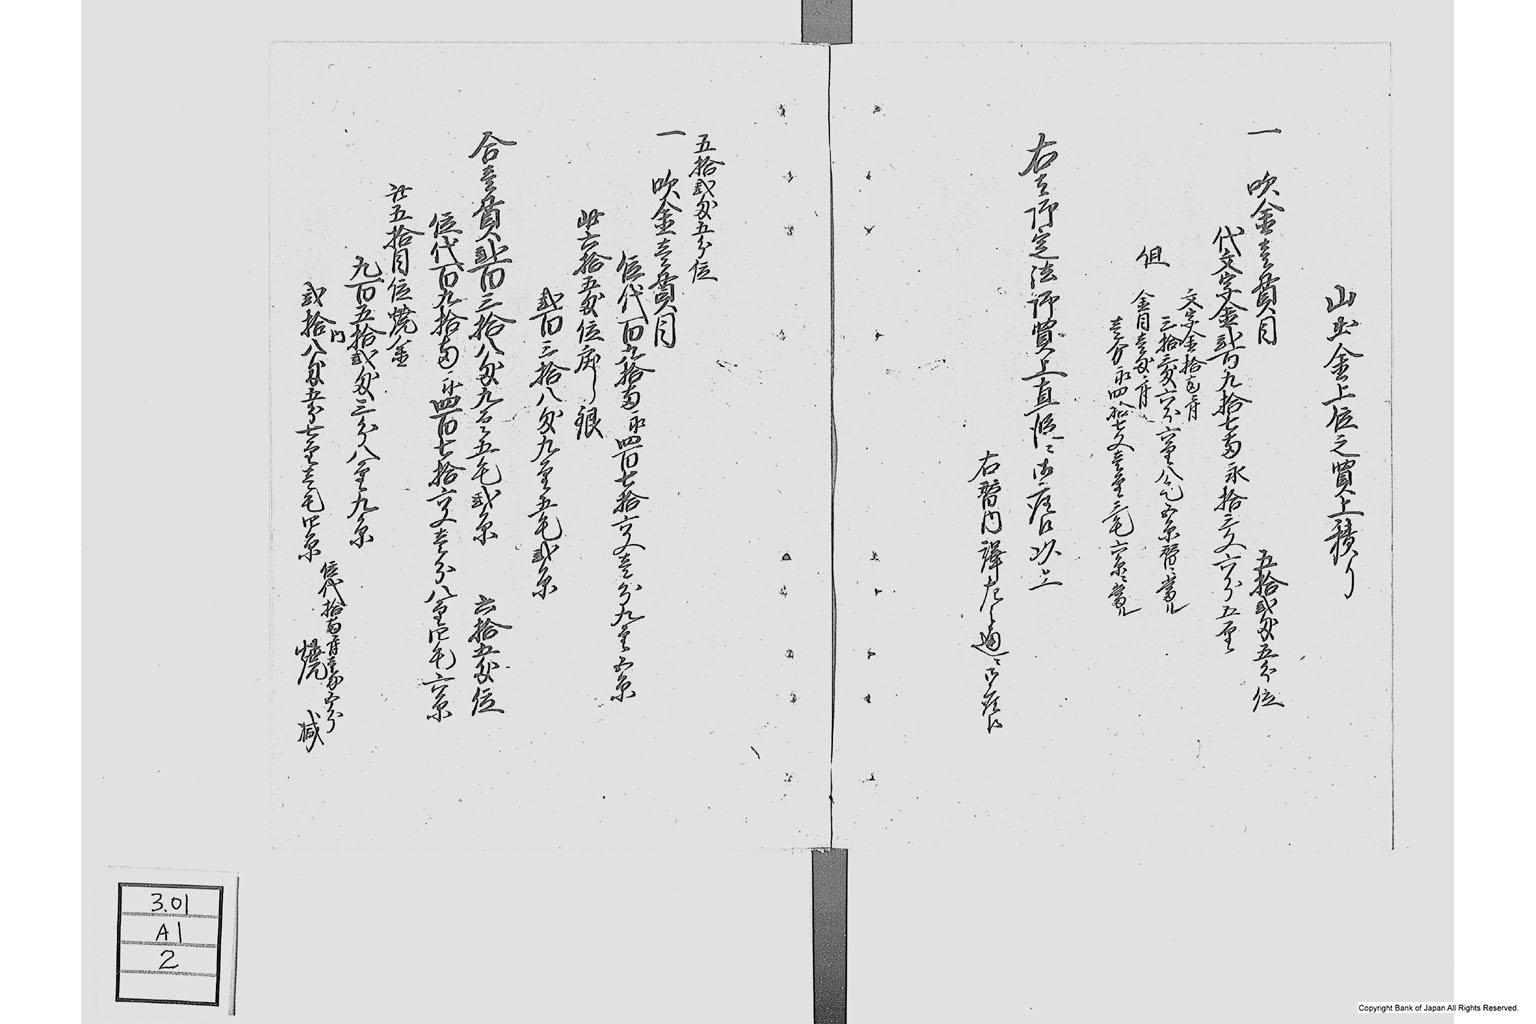 山出金上位之買上積り
一 吹金壱貫目 五拾弐匁五分位
代文字金弐百九拾七両永拾三文六分五厘
但
文字金拾両ニ付
三拾三匁六分六厘八毛五糸替ニ当ル
金目壱匁ニ付
壱分永四拾七文壱厘三毛六糸ニ当ル
右は御定法御買上直段ニ御座候以上
右替内譯左之通ニ御座候
五拾弐匁五分位
一 吹金壱貫目
位代百九拾両永四百七拾六文壱分九厘五糸
此六拾五匁位戻り銀
弐百三拾八匁九厘五毛弐糸
合壱貫弐百三拾八匁九厘五毛弐糸 六拾五匁位
位代百九拾両永四百七拾六文壱分八厘四毛六糸
此五拾目位焼金
九百五拾弐匁三分八厘九糸
内
位代拾両ニ付壱匁五分
弐拾八匁五分七厘壱毛四糸 焼減
3.01
A1
2
Copyright Bank of Japan All Rights Reserved.